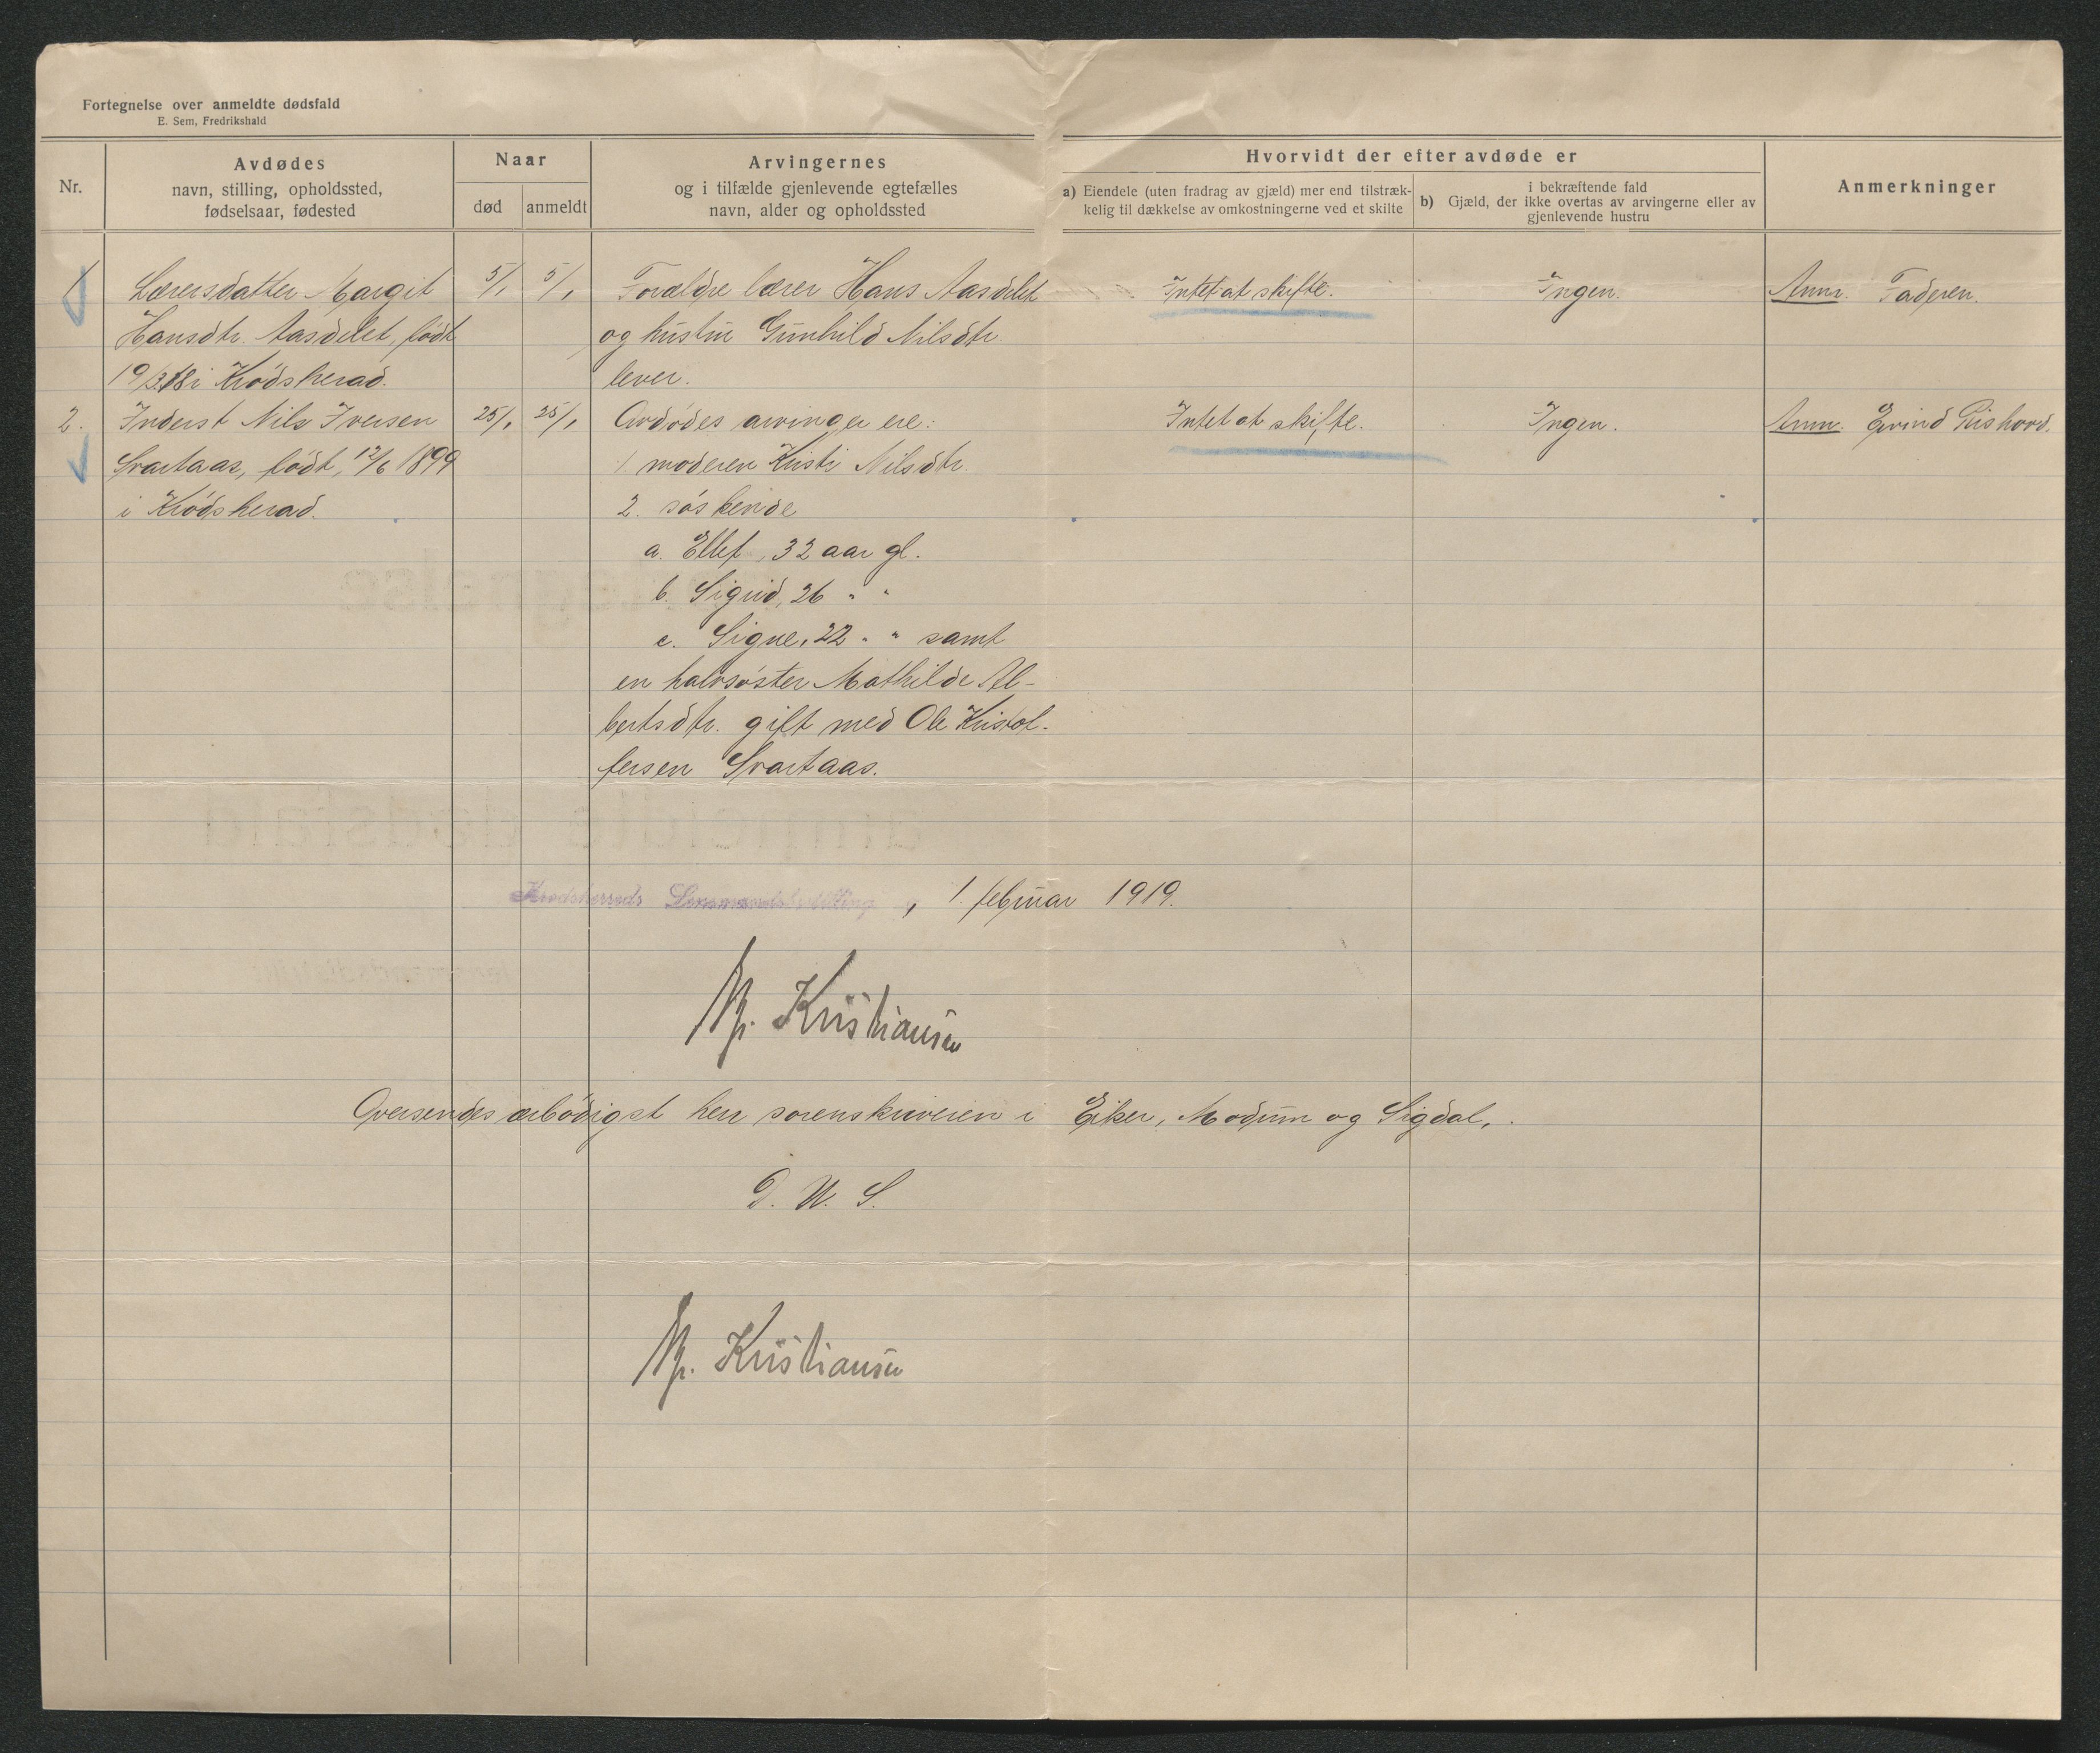 Fortegnelse over anmeldte dødsfald
E. Sem, Fredrikshald
Nr.
Avdødes
navn, stilling, opholdssted,
fødselsaar, fødested
Naar
død
anmeldt
Arvingernes
og i tilfælde gjenlevende egtefælles
navn, alder og opholdssted
Hvorvidt der efter avdøde er
a) Eiendele (uten fradrag av gjæld) mer end tilstræk-
kelig til dækkelse av omkostningerne ved et skifte
b) i bekræftende fald
Gjæld, der ikke overtas av arvingerne eller av
gjenlevende hustru
Anmerkninger
1 Lærersdatter Margit 5/1 5/1 Forældre lærer Hans Aasdelet Intet at skifte. Ingen. Anm. Faderen.
Hansdtr. Aasdelet, født og hustru Gunhild Nilsdtr.
19/3.18 i Krødsherad. lever.
2. Inderst Nils Iversen 25/1 25/1 Avdødes arvinger ere: Intet at skifte. Ingen. Anm. Eivind
Svartaas, født 12/6 1899 1. moderen Kristi Nilsdtr.
i Krødsherad. 2. søskende
a. Ellef, 32 aar gl.
b. Sigrid, 26 " "
c. Signe, 22 " " samt
en halvsøster Mathilde Al-
bertsdtr. gift med Ole Kristof-
fersen Svartaas.
Krødsherreds Lensmandsbestilling, 1. februar 1919.
Kristiansen
Oversendes ærbødigst herr sorenskriveren i Eiker, Modum og Sigdal.
D. U. S.
Kristiansen